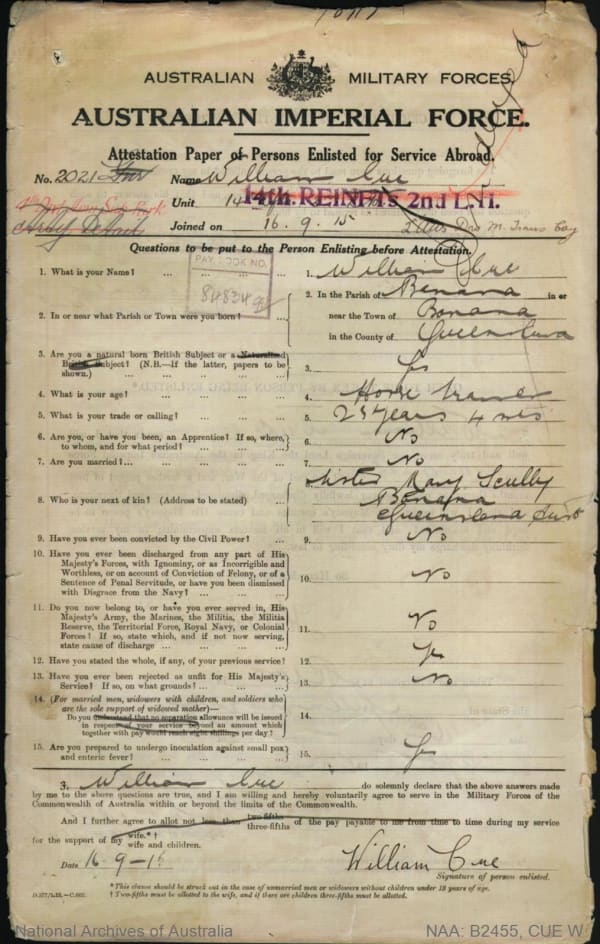 AUSTRALIAN MILITARY FORCES.
AUSTRALIAN IMPERIAL FORCE.
Attestation Paper of Persons Enlisted for Service Abroad.
No. 2021 Name William Cue
Unit 14th REINFTS 2nd L.N.
Joined on 16.9.15
Questions to be put to the Person Enlisting before Attestation.
PAY BOOK NO.
1. What is your Name? ... 1. William Cue
2. In or near what Parish or Town were you born? ... 2. In the Parish of Benana in or
near the Town of Bonana
in the County of Queensland
3. Are you a natural born British Subject or a Naturalised
British Subject? (N.B.—If the latter, papers to be
shown.) ... 3. Yes
4. What is your age? ... 4. Horse Trainer
5. What is your trade or calling? ... 5. 23 years 4 mts
6. Are you, or have you been, an Apprentice? If so, where,
to whom, and for what period? ... 6. No
7. Are you married? ... 7. No
8. Who is your next of kin? (Address to be stated) ... 8. Sister Mary Scully
Benana
Queensland
9. Have you ever been convicted by the Civil Power? ... 9. No
10. Have you ever been discharged from any part of His
Majesty's Forces, with Ignominy, or as Incorrigible and
Worthless, or on account of Conviction of Felony, or of a
Sentence of Penal Servitude, or have you been dismissed
with Disgrace from the Navy? ... 10. No
11. Do you now belong to, or have you ever served in, His
Majesty's Army, the Marines, the Militia, the Militia
Reserve, the Territorial Force, Royal Navy, or Colonial
Forces? If so, state which, and if not now serving,
state cause of discharge ... 11. No
12. Have you stated the whole, if any, of your previous service? 12. Yes
13. Have you ever been rejected as unfit for His Majesty's
Service? If so, on what grounds? ... 13. No
14. (For married men, widowers with children, and soldiers who
are the sole support of widowed mother)—
Do you understand that no separation allowance will be issued
in respect of your service beyond an amount which
together with pay would reach eight shillings per day? 14.
15. Are you prepared to undergo inoculation against small pox
and enteric fever? ... 15. Yes
3. William Cue do solemnly declare that the above answers made
by me to the above questions are true, and I am willing and hereby voluntarily agree to serve in the Military Forces of the
Commonwealth of Australia within or beyond the limits of the Commonwealth.
And I further agree to allot not less than two-fifths
three-fifths of the pay payable to me from time to time during my service
for the support of my wife.*†
wife and children.
Date 16-9-15 William Cue
Signature of person enlisted.
*This clause should be struck out in the case of unmarried men or widowers without children under 18 years of age.
† Two-fifths must be allotted to the wife, and if there are children three-fifths must be allotted.
National Archives of Australia NAA: B2455, CUE W